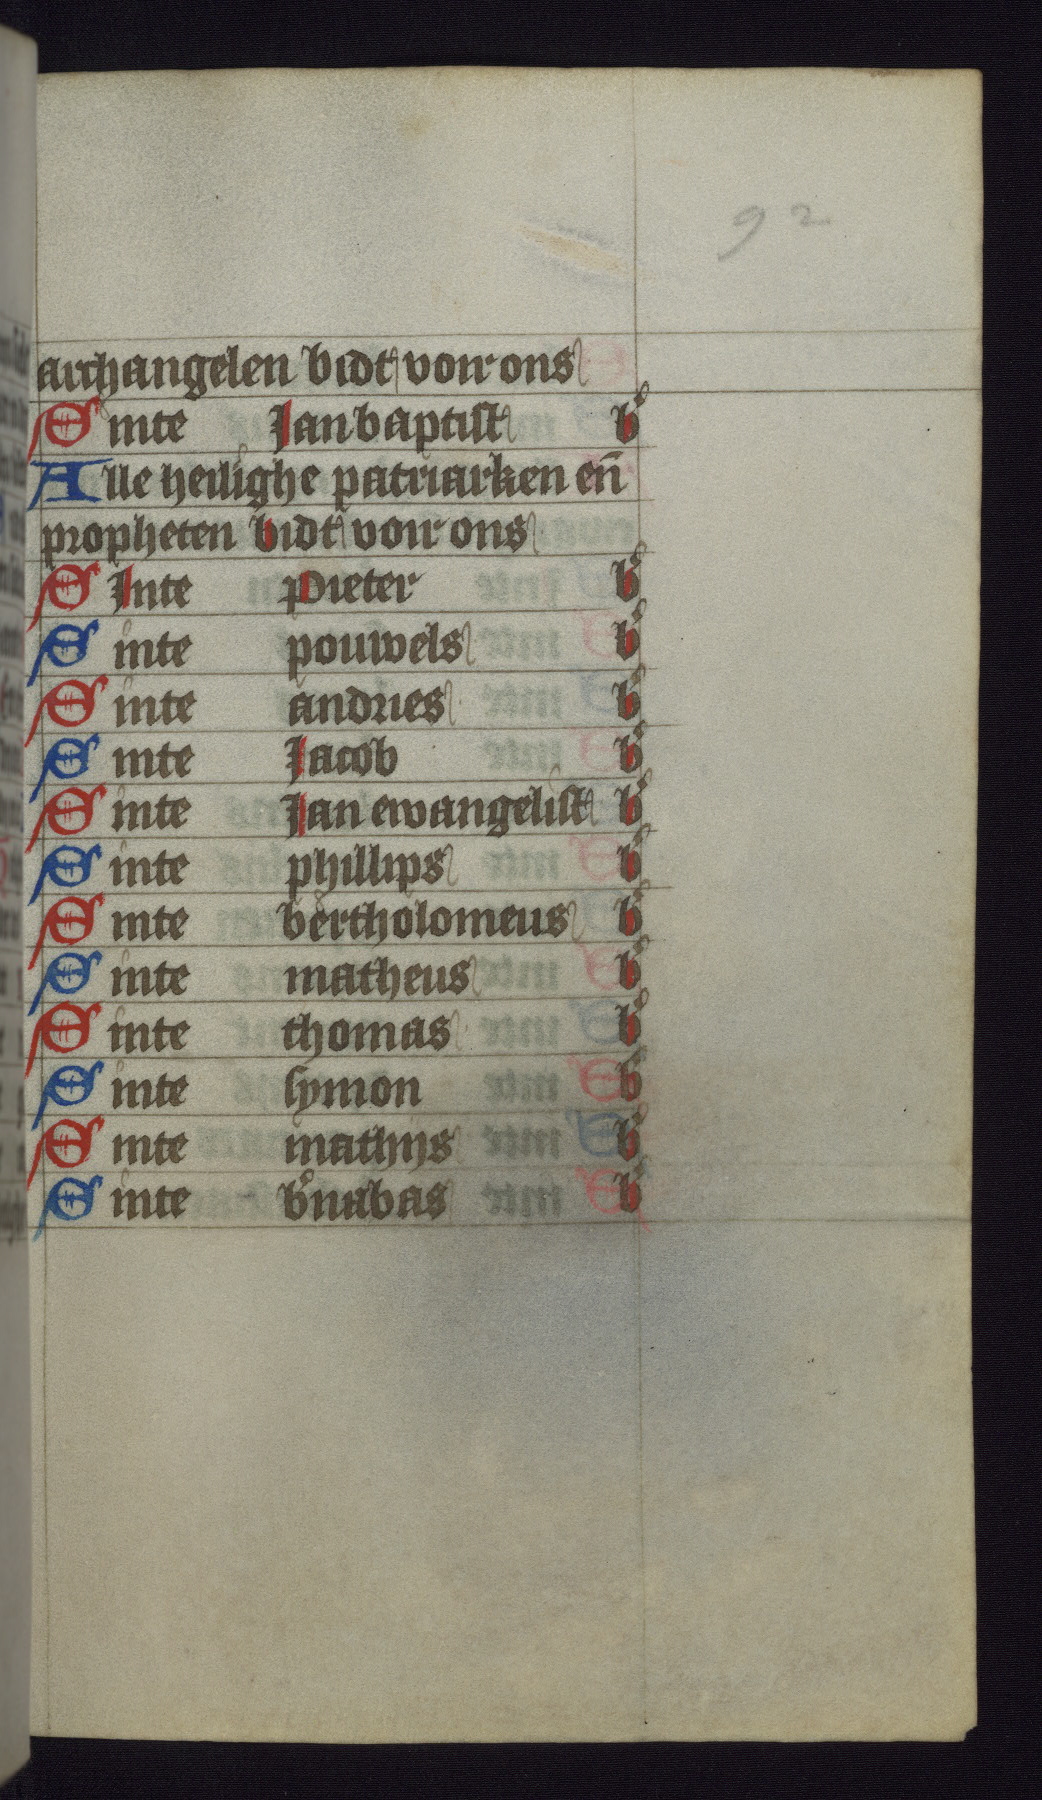 92
archangelen bidt voir ons
Sinte Jan baptist b
Alle heilighe patriarken en̄
propheten bidt voir ons
SInte Pieter b
Sinte pouwels b
Sinte andries b
Sinte Jacob b
Sinte Jan ewangelist b
Sinte phillips b
Sinte bertholomeus b
Sinte matheus b
Sinte thomas b
Sinte symon b
Sinte mathijs b
Sinte b'nabas b